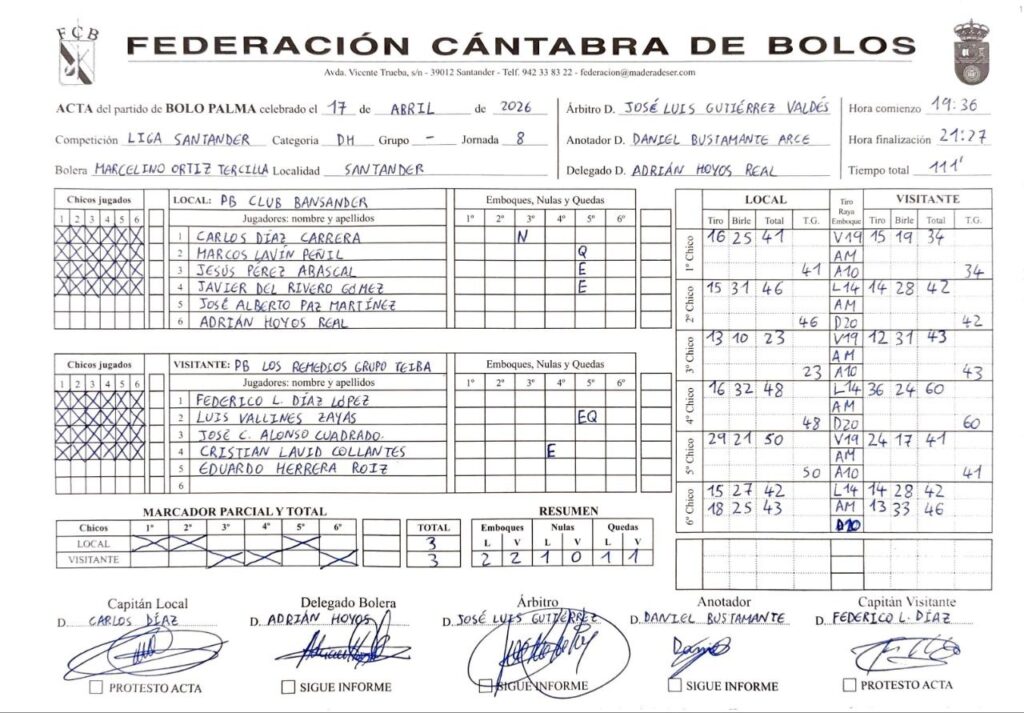 FCB
FEDERACIÓN CÁNTABRA DE BOLOS
Avda. Vicente Trueba, s/n - 39012 Santander - Telf. 942 33 83 22 - federacion@maderadeser.com
ACTA del partido de BOLO PALMA celebrado el 17 de ABRIL de 2026 Árbitro D. JOSÉ LUIS GUTIÉRREZ VALDÉS Hora comienzo 19:36
Competición LIGA SANTANDER Categoria DH Grupo - Jornada 8 Anotador D. DANIEL BUSTAMANTE ARCE Hora finalización 21:27
Bolera MARCELINO ORTIZ TERCILLA Localidad SANTANDER Delegado D. ADRIÁN HOYOS REAL Tiempo total 111'
Chicos jugados LOCAL: PB CLUB BANSANDER Emboques, Nulas y Quedas
1 2 3 4 5 6 Jugadores: nombre y apellidos 1º 2º 3º 4º 5º 6º
1 CARLOS DÍAZ CARRERA N
2 MARCOS LAVÍN PEÑIL Q
3 JESÚS PÉREZ ABASCAL E
4 JAVIER DEL RIVERO GÓMEZ E
5 JOSÉ ALBERTO PAZ MARTÍNEZ
6 ADRIÁN HOYOS REAL
Chicos jugados VISITANTE: PB LOS REMEDIOS GRUPO TEIBA Emboques, Nulas y Quedas
1 2 3 4 5 6 Jugadores: nombre y apellidos 1º 2º 3º 4º 5º 6º
1 FEDERICO L. DÍAZ LÓPEZ
2 LUIS VALLINES ZAYAS EQ
3 JOSÉ C. ALONSO CUADRADO.
4 CRISTIAN LAVID COLLANTES E
5 EDUARDO HERRERA ROIZ
6
MARCADOR PARCIAL Y TOTAL
Chicos 1º 2º 3º 4º 5º 6º TOTAL
LOCAL X X X 3
VISITANTE X X X 3
RESUMEN
Emboques Nulas Quedas
L V L V L V
2 2 1 0 1 1
LOCAL Tiro Raya Emboque VISITANTE
Tiro Birle Total T.G. Tiro Birle Total T.G.
1º Chico 16 25 41 V19 15 19 34
AM
41 A10 34
2º Chico 15 31 46 L14 14 28 42
AM
46 D20 42
3º Chico 13 10 23 V19 12 31 43
AM
23 A10 43
4º Chico 16 32 48 L14 36 24 60
AM
48 D20 60
5º Chico 29 21 50 V19 24 17 41
AM
50 A10 41
6º Chico 15 27 42 L14 14 28 42
18 25 43 AM 13 33 46
D20
Capitán Local Delegado Bolera Árbitro Anotador Capitán Visitante
D. CARLOS DÍAZ D. ADRIÁN HOYOS D. JOSÉ LUIS GUTIÉRREZ D. DANIEL BUSTAMANTE D. FEDERICO L. DÍAZ
PROTESTO ACTA SIGUE INFORME SIGUE INFORME SIGUE INFORME PROTESTO ACTA